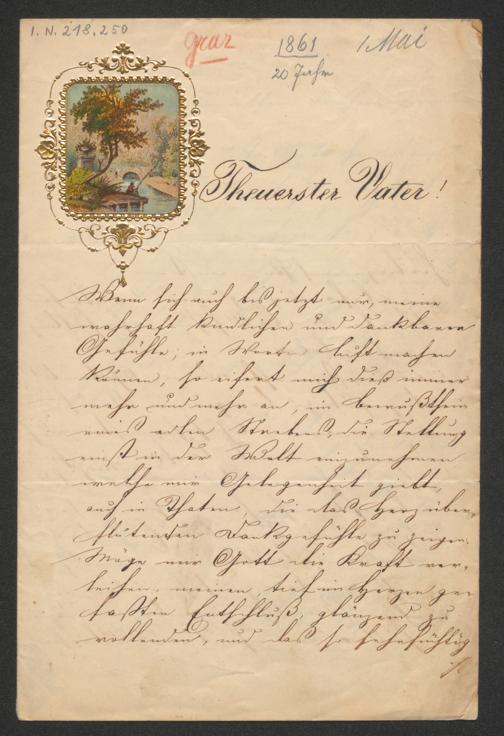 I. N. 218.250
Graz
1861
1 Mai
20 Jahre
Theuerster Vater!
Wenn sich auch bis jetzt nur, meine
wahrhaft kindlichen und dankbaren
Gefühle, in Worten Luft machen
können, so eifert mich dieß immer
mehr und mehr an, im Bewußtsein
eines edlen Strebens, die Stellung
einst in der Welt einzunehmen
welche mir Gelegenheit giebt,
auch in Thaten, die das Herz über-
flutenden Dankgefühle zu zeigen.
Möge mir Gott die Kraft ver-
leihen, meinen, tief im Herzen ge-
faßten Entschluß, glänzend zu
vollenden, und das so sehnsüchtig